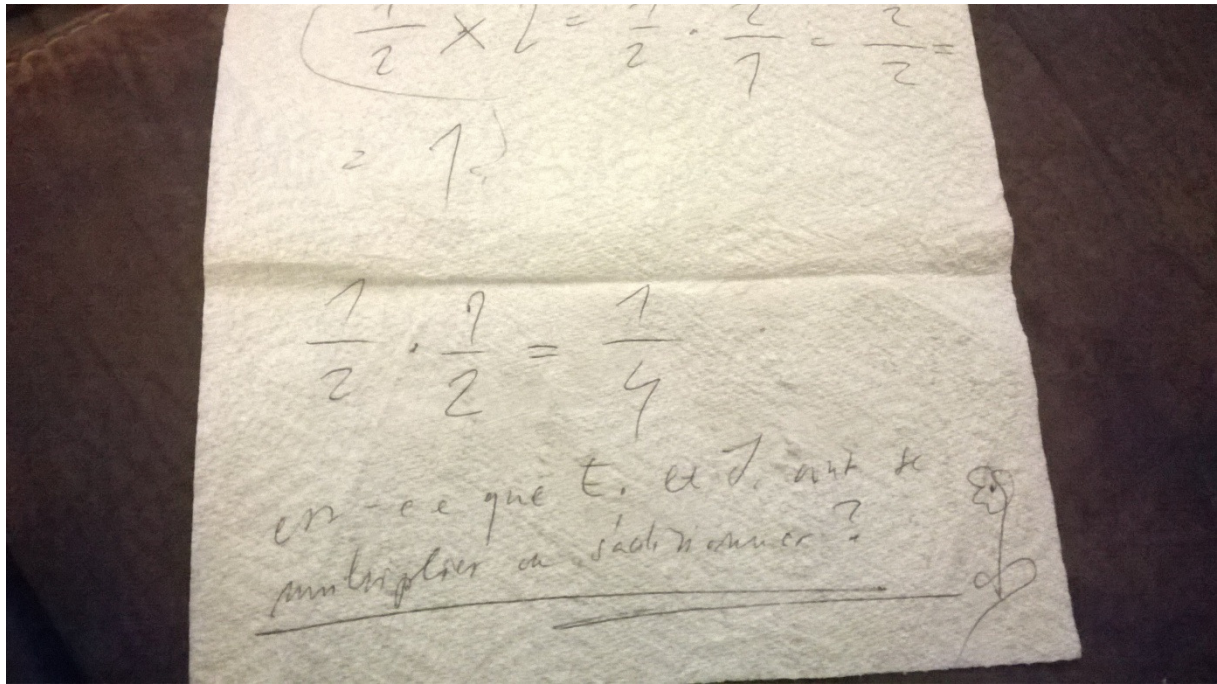 1/2 × 2 = 1/2 · 2/1 = 2/2 =
= 1
1/2 · 1/2 = 1/4
est-ce que t. et J. ont se
multiplier ou s'additionner ?